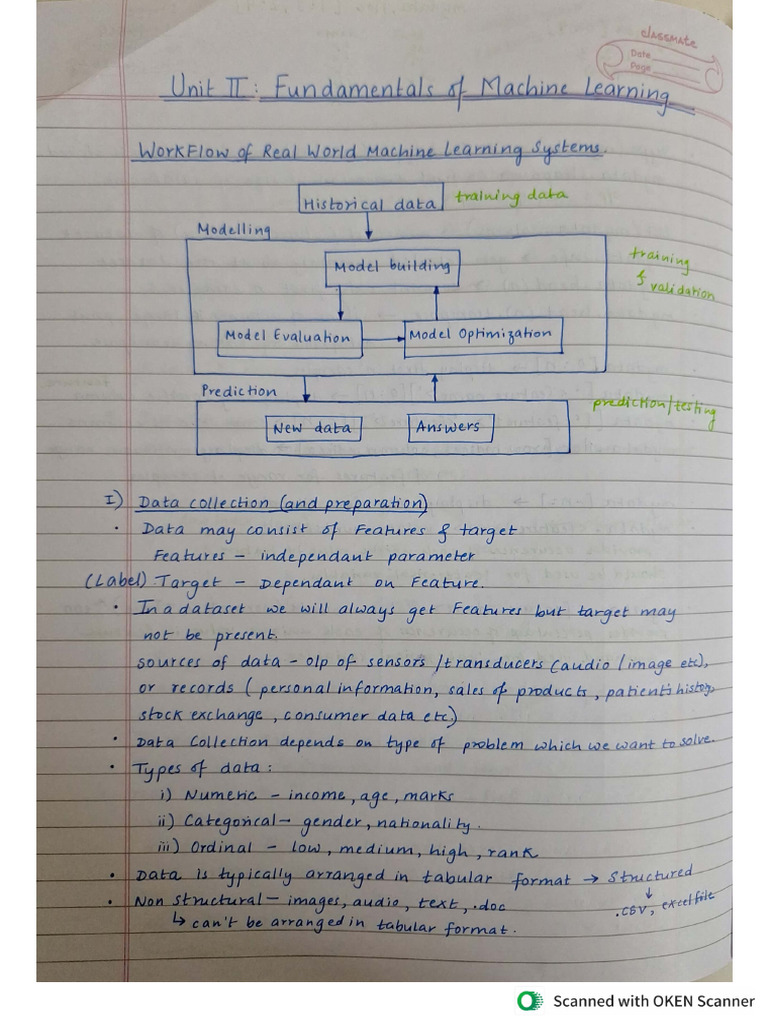 classmate
Date
Page
Unit II : Fundamentals of Machine Learning
Workflow of Real World Machine Learning Systems.
Historical data training data
Modelling
training
& validation
Model building
Model Evaluation Model Optimization
Prediction
prediction/testing
New data Answers
I) Data collection (and preparation)
· Data may consist of Features & target
Features – independant parameter
(Label) Target – Dependant on Feature.
· In a dataset we will always get Features but target may
not be present.
sources of data – o/p of sensors /transducers (audio / image etc),
or records ( personal information, sales of products, patients history,
stock exchange, consumer data etc)
· Data Collection depends on type of problem which we want to solve.
· Types of data :
i) Numeric – income, age, marks
ii) Categorical – gender, nationality.
iii) Ordinal – low, medium, high, rank
· Data is typically arranged in tabular format → Structured
↓
.csv, excel file
· Non structural – images, audio, text, .doc
↳ can't be arranged in tabular format.
Scanned with OKEN Scanner